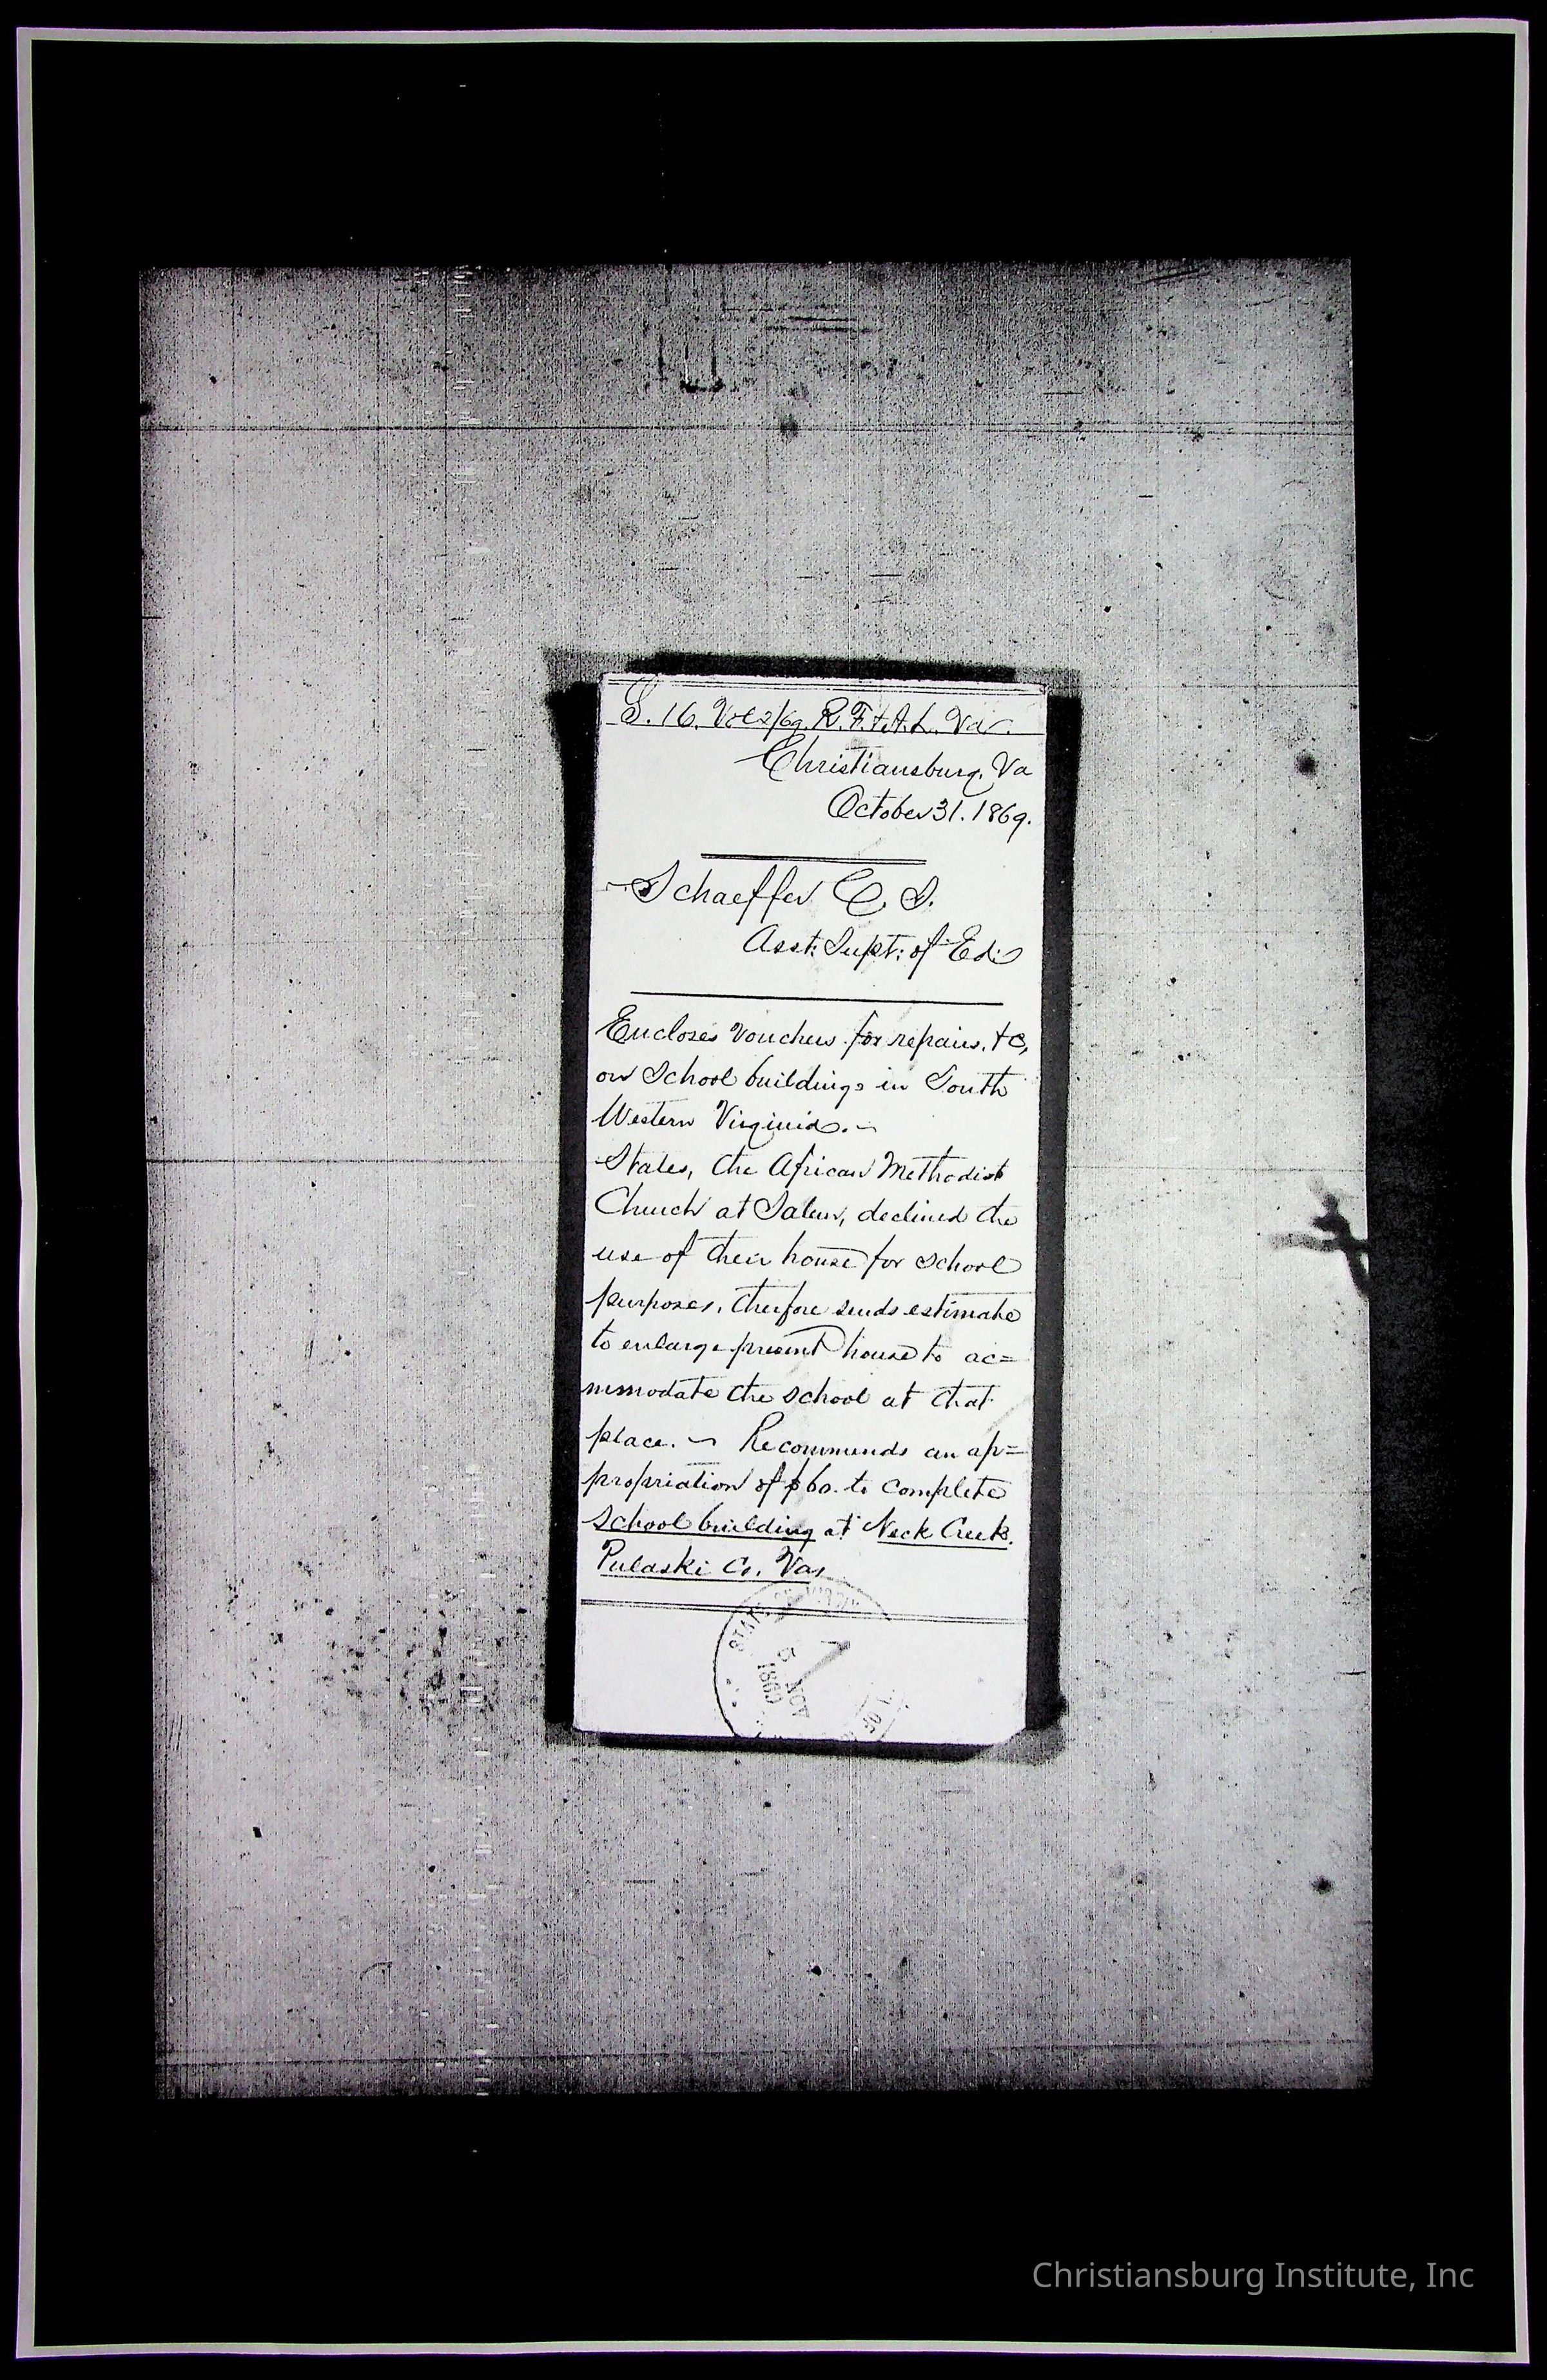 S. 16. Vol 2/69. R. F. & A. L. Va.
Christiansburg. Va
October 31. 1869.
Schaeffer C. S.
Asst: Supt: of Ed:
Encloses Vouchers for repairs, &c,
on School buildings in South
Western Virginia. ~
States, the African Methodist
Church at Salem, declined the
use of their house for School
purposes, therefore sends estimate
to enlarge present house to ac=
mmodate the school at that
place. ~ Recommends an ap=
propriation of $60. to complete
School building at Neck Creek.
Pulaski Co. Va,
5 NOV
1869
OF
Christiansburg Institute, Inc